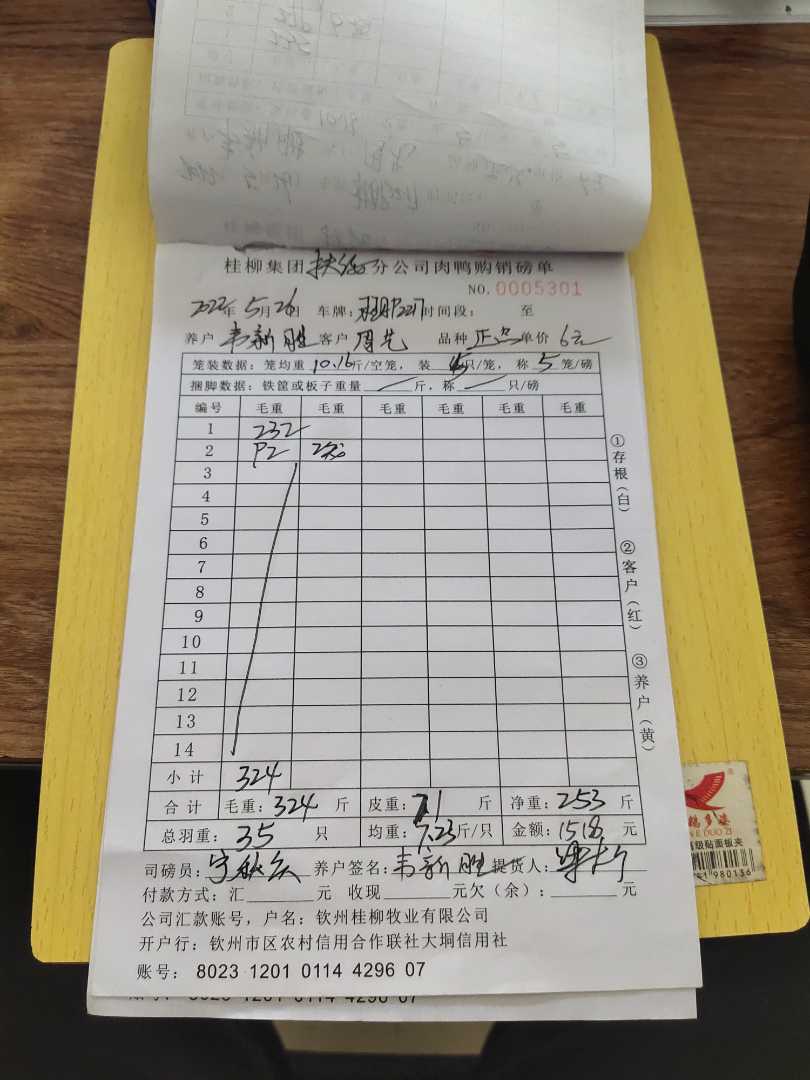 桂柳集团扶绥分公司肉鸭购销磅单
NO. 0005301
2022年5月26日 车牌: 时间段: 至
养户 韦新胜 客户 周先 品种 正品 单价 6元
笼装数据: 笼均重 10.16斤/空笼, 装 只/笼, 称 5 笼/磅
捆脚数据: 铁筐或板子重量 斤, 称 只/磅
编号 毛重 毛重 毛重 毛重 毛重 毛重
1 232
2 92
3
4
5
6
7
8
9
10
11
12
13
14
小计 324
合计 毛重: 324 斤 皮重: 71 斤 净重: 253 斤
总羽重: 35 只 均重: 7.23斤/只 金额: 1518 元
司磅员: 养户签名: 韦新胜 提货人:
付款方式: 汇 元 收现 元欠(余): 元
公司汇款账号, 户名: 钦州桂柳牧业有限公司
开户行: 钦州市区农村信用合作联社大垌信用社
账号: 8023 1201 0114 4296 07
①存根(白)
②客户(红)
③养户(黄)